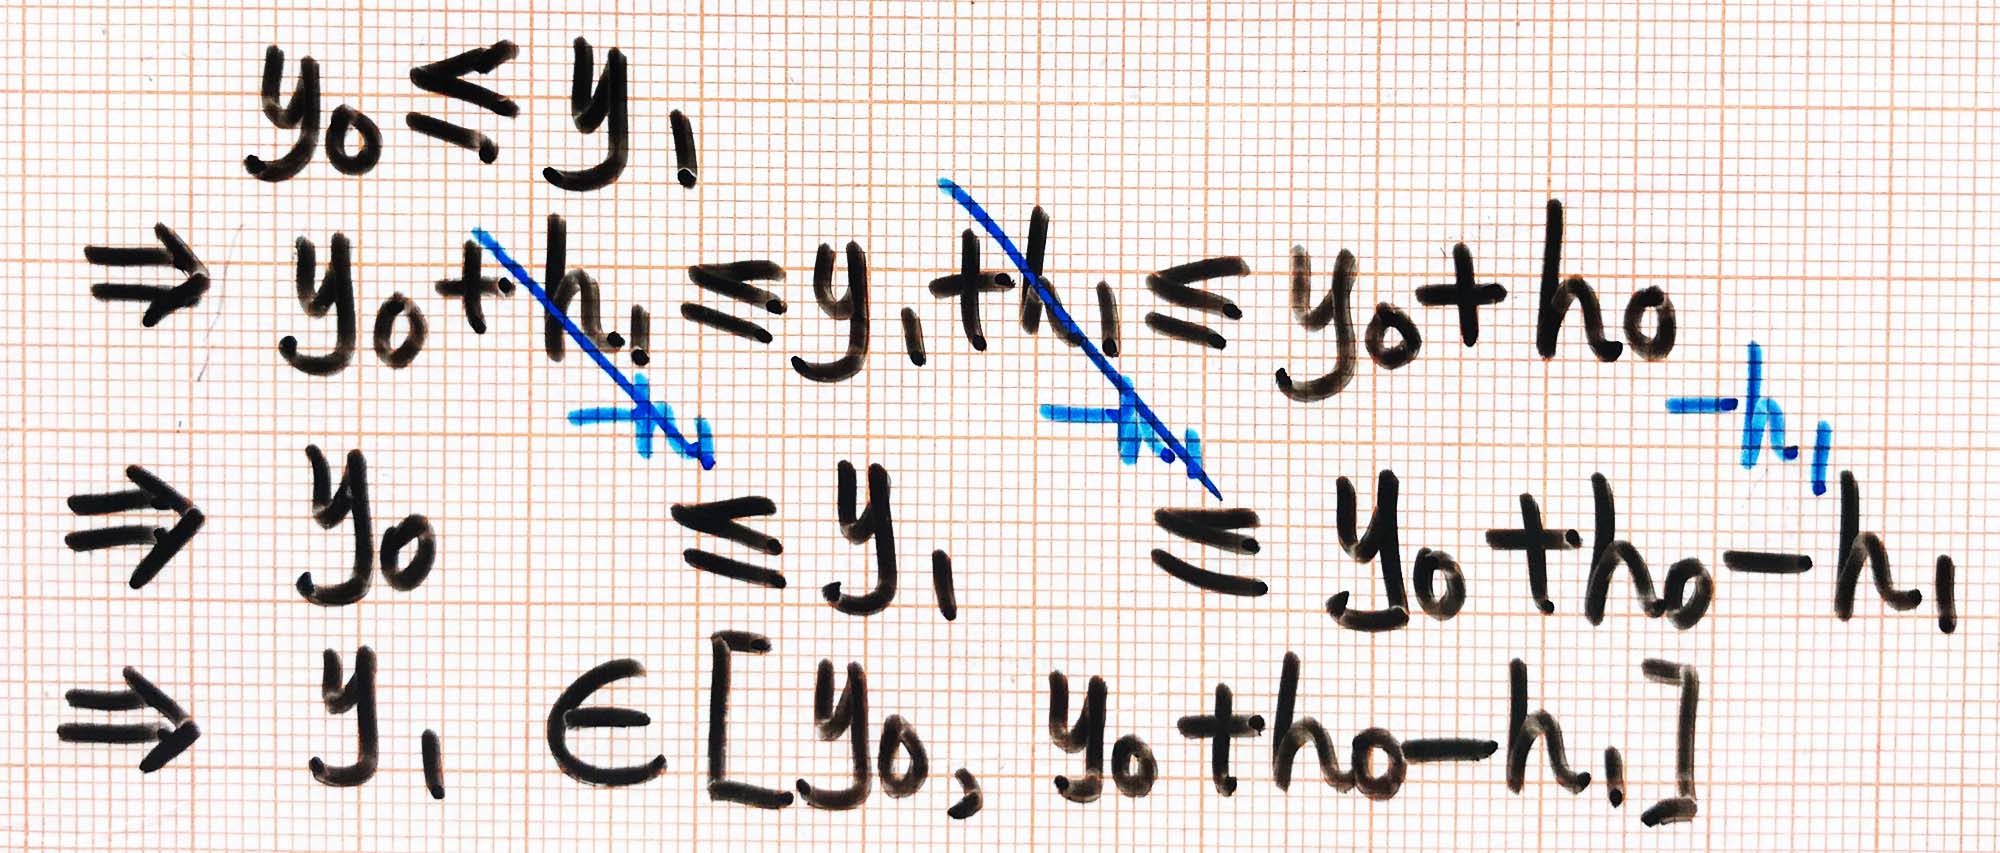 y₀ ≤ y₁
⇒ y₀ + h₁ ≤ y₁ + h₁ ≤ y₀ + h₀
-h₁ -h₁ -h₁
⇒ y₀ ≤ y₁ ≤ y₀ + h₀ - h₁
⇒ y₁ ∈ [y₀, y₀ + h₀ - h₁]